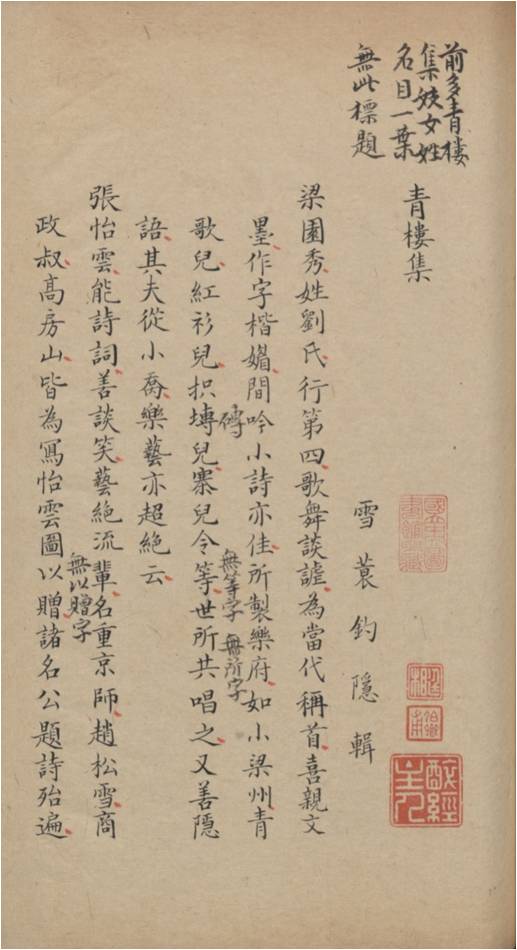 前多青樓
集妓女姓
名目一葉
無此標題
青樓集
雪蓑釣隱輯
梁園秀姓劉氏行第四歌舞談謔為當代稱首喜親文
墨作字楷媚間吟小詩亦佳所製樂府如小梁州青
歌兒紅衫兒抧塼兒寨兒令等世所共唱之又善隱
磚
無等字
無所字
語其夫從小喬樂藝亦超絶云
張怡雲能詩詞善談笑藝絶流輩名重京師趙松雪商
無以贈字
政叔高房山皆為寫怡雲圖以贈諸名公題詩殆遍